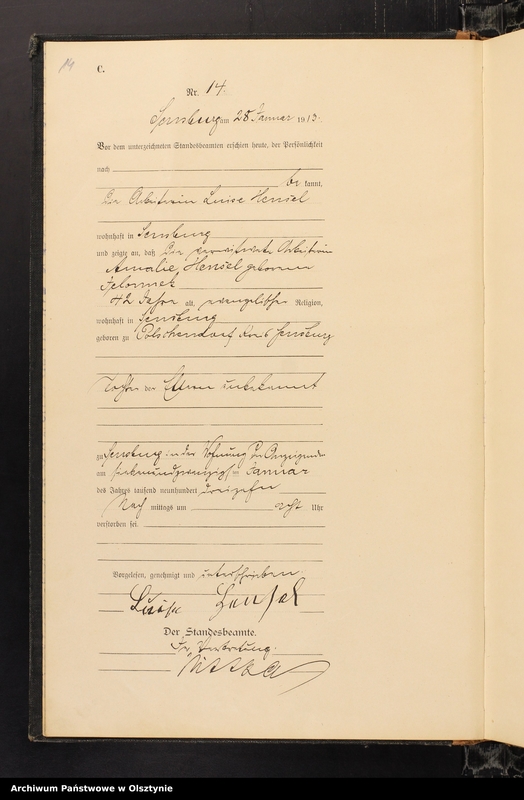 14
C.
Nr. 14.
Sensburg am 28 Januar 1913.
Vor dem unterzeichneten Standesbeamten erschien heute, der Persönlichkeit
nach
be kannt,
die Arbeiterin Luise Hensel
wohnhaft in Sensburg
und zeigte an, daß die verwitwete Arbeiterin
Amalie Hensel geborene
42 Jahre alt, evangelischer Religion,
wohnhaft in Sensburg
geboren zu Polschendorf Kreis Sensburg
Tochter der Eltern unbekannt
zu Sensburg in der Wohnung der Anzeigenden
am siebenundzwanzigsten Januar
des Jahres tausend neunhundert dreizehn
Nach mittags um acht Uhr
verstorben sei.
Vorgelesen, genehmigt und unterschrieben.
Luise Hensel
Der Standesbeamte.
In Vertretung.
Archiwum Państwowe w Olsztynie